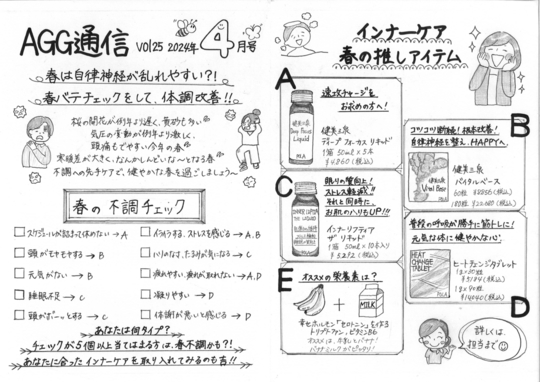 AGG通信 vol25 2024年 4月号
春は自律神経が乱れやすい?!
春バテチェックをして、体調改善!!
桜の開花が例年より遅く、黄砂も多い
気圧の変動が例年より激しく、
頭痛もでやすい今年の春
寒暖差が大きく、なんかしんどいな〜となる春
不調への先手ケアで、健やかな春を過ごしましょう〜
春の不調チェック
スケジュールが詰まって休めない → A
イライラする、ストレスを感じる → A.B
頭がモヤモヤする → B
ハリのなさ、たるみが気になる → C
元気がない → B
疲れやすい、疲れが取れない → A.D
睡眠不足 → C
凝りやすい → D
頭がボーッとする → C
体側が悪いと感じる → D
あなたは何タイプ?
チェックが5個以上当てはまる方は、春不調かも?!
あなたに合ったインナーケアを取り入れてみるのも吉!!
インナーケア
春の推しアイテム
A
速攻チャージを
お求めの方へ!
健美三泉
Deep Focus
Liquid
健美三泉
ディープ フォーカス リキッド
1箱 50ml×5本
¥4,860(税込)
B
コツコツ断続! 根本改善!
自律神経を整え、HAPPYへ。
Vital Base
健美三泉
バイタルベース
60粒
180粒
C
眠りの質向上!
ストレス軽減!!
それと同時に、
お肌のハリもUP!!!
インナーリフティア
ザ リキッド
1箱 50ml×10本入り
D
普段の呼吸が勝手に筋トレに!
元気な体に健やかな心。
HEAT
CHARGE
TABLET
ヒートチャージタブレット
E
オススメの栄養素は?
MILK
幸せホルモン「セロトニン」を作る
トリプトファン、ビタミンB6
オススメは、牛乳とバナナ!
バナナミルクがピッタリ!
詳しくは、
担当まで